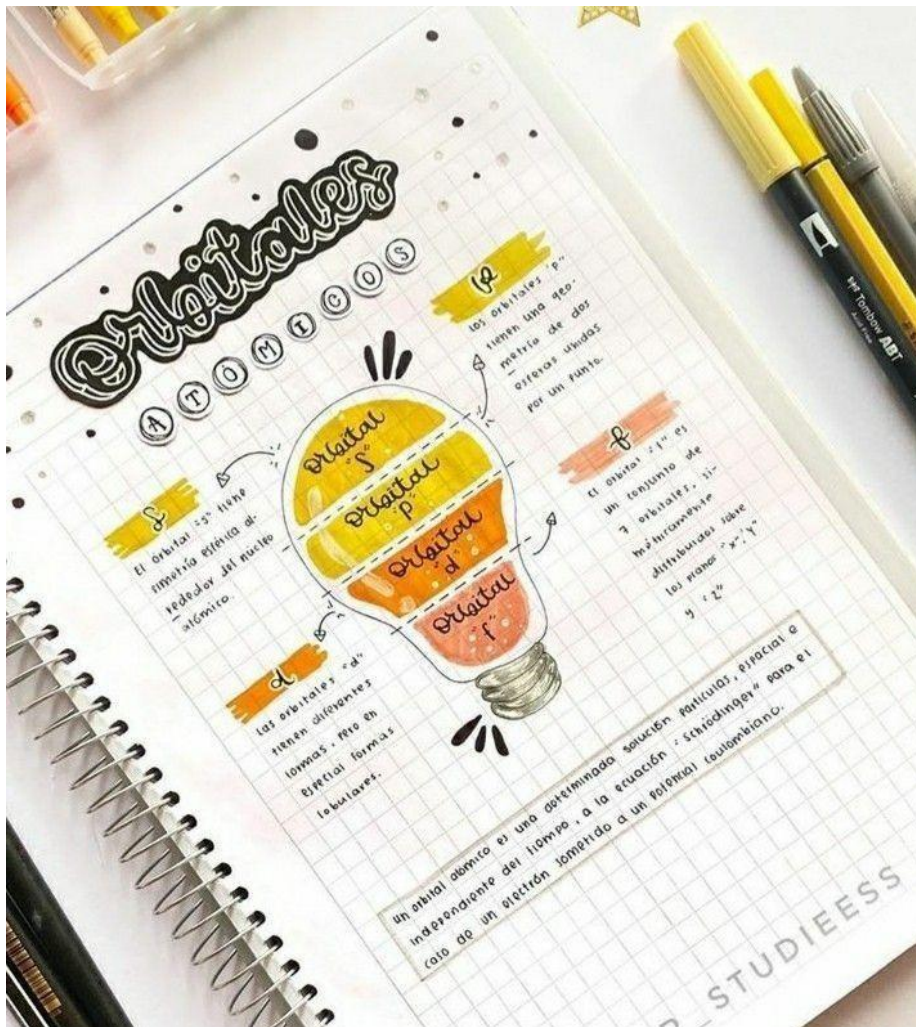 Orbitales
ATÓMICOS
p
Los orbitales "p"
tienen una geo-
metría de dos
esferas unidas
por un punto.
s
El orbital "s" tiene
simetría esférica al-
rededor del núcleo
atómico.
Orbital
"s"
Orbital
"p"
Orbital
"d"
Orbital
"f"
f
El orbital "f" es
un conjunto de
7 orbitales, si-
métricamente
distribuidos sobre
los planos "x", "y"
y "z"
d
Las orbitales "d"
tienen diferentes
formas, pero en
especial formas
lobulares.
un orbital atómico es una determinada solución partículas, espacial e
independiente del tiempo, a la ecuación "schrödinger" para el
caso de un electrón sometido a un potencial coulombiano.
Tombow ABT
STUDIEESS